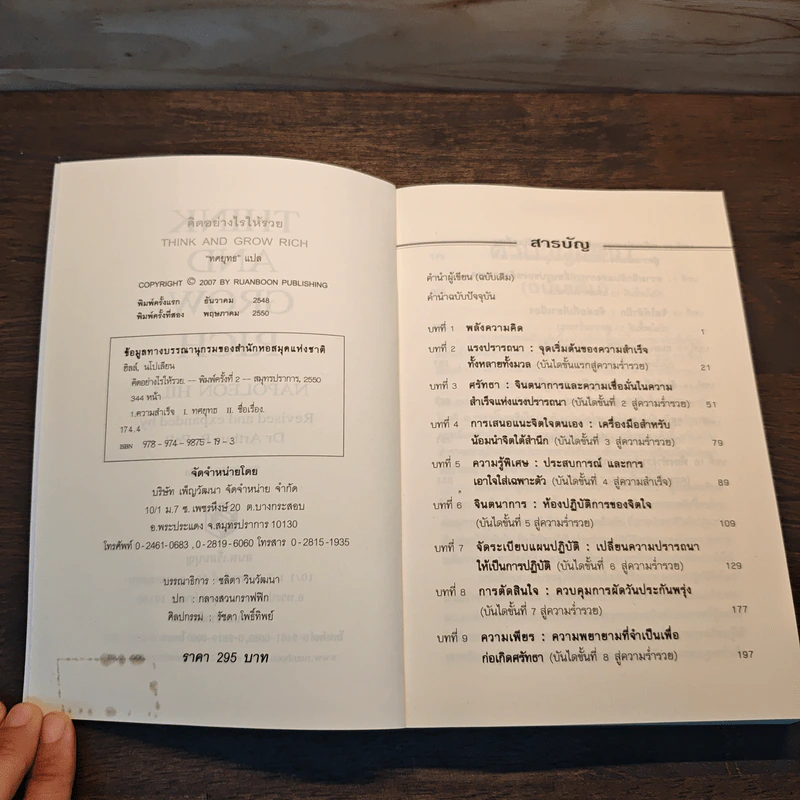 คิดอย่างไรให้รวย
THINK AND GROW RICH
"ทศยุทธ" แปล
COPYRIGHT © 2007 BY RUANBOON PUBLISHING
พิมพ์ครั้งแรก ธันวาคม 2548
พิมพ์ครั้งที่สอง พฤษภาคม 2550
ข้อมูลทางบรรณานุกรมของสำนักหอสมุดแห่งชาติ
ฮิลล์, นโปเลียน
คิดอย่างไรให้รวย. — พิมพ์ครั้งที่ 2 — สมุทรปราการ, 2550
344 หน้า
1.ความสำเร็จ I. ทศยุทธ II. ชื่อเรื่อง.
174.4
ISBN 978 - 974 - 9875 - 19 - 3
จัดจำหน่ายโดย
บริษัท เพ็ญวัฒนา จัดจำหน่าย จำกัด
10/1 ม.7 ซ.เพชรหึงษ์ 20 ต.บางกระสอบ
อ.พระประแดง จ.สมุทรปราการ 10130
โทรศัพท์ 0-2461-0683 , 0-2819-6060 โทรสาร 0-2815-1935
บรรณาธิการ : ชลิตา วินวัฒนา
ปก : กลางสวนกราฟฟิก
ศิลปกรรม : รัชดา โพธิ์ทิพย์
ราคา 295 บาท
สารบัญ
คำนำผู้เขียน (ฉบับเดิม)
คำนำฉบับปัจจุบัน
บทที่ 1 พลังความคิด 1
บทที่ 2 แรงปรารถนา : จุดเริ่มต้นของความสำเร็จ
ทั้งหลายทั้งมวล (บันไดขั้นแรกสู่ความร่ำรวย) 21
บทที่ 3 ศรัทธา : จินตนาการและความเชื่อมั่นในความ
สำเร็จแห่งแรงปรารถนา (บันไดขั้นที่ 2 สู่ความร่ำรวย) 51
บทที่ 4 การเสนอแนะจิตใจตนเอง : เครื่องมือสำหรับ
น้อมนำจิตใต้สำนึก (บันไดขั้นที่ 3 สู่ความร่ำรวย) 79
บทที่ 5 ความรู้พิเศษ : ประสบการณ์ และการ
เอาใจใส่เฉพาะตัว (บันไดขั้นที่ 4 สู่ความสำเร็จ) 89
บทที่ 6 จินตนาการ : ห้องปฏิบัติการของจิตใจ
(บันไดขั้นที่ 5 สู่ความร่ำรวย) 109
บทที่ 7 จัดระเบียบแผนปฏิบัติ : เปลี่ยนความปรารถนา
ให้เป็นการปฏิบัติ (บันไดขั้นที่ 6 สู่ความร่ำรวย) 129
บทที่ 8 การตัดสินใจ : ควบคุมการผัดวันประกันพรุ่ง
(บันไดขั้นที่ 7 สู่ความร่ำรวย) 177
บทที่ 9 ความเพียร : ความพยายามที่จำเป็นเพื่อ
ก่อเกิดศรัทธา (บันไดขั้นที่ 8 สู่ความร่ำรวย) 197